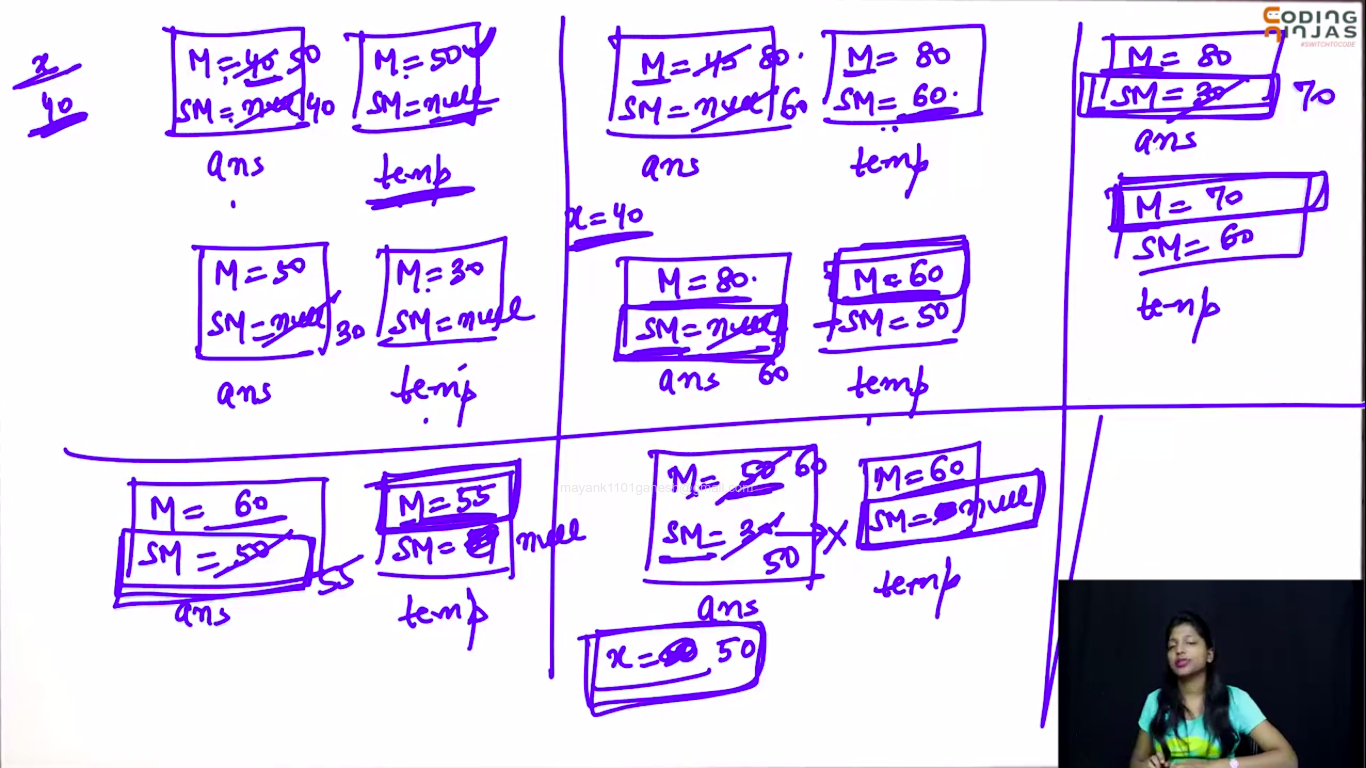 CODING
NINJAS
#SWITCHTOCODE
x
40
M = 40 50
SM = null 40
ans
M = 50
SM = null
temp
M = 50
SM = null 30
ans
M = 30
SM = null
temp
M = 45 80
SM = null 60
ans
M = 80
SM = 60
temp
x = 40
M = 80
SM = null
60
ans
M = 60
SM = 50
temp
M = 80
SM = 30 70
ans
M = 70
SM = 60
temp
M = 60
SM = 50 55
ans
M = 55
SM = null
temp
M = 50 60
SM = 30 X
50
ans
M = 60
SM = null
temp
x = 50